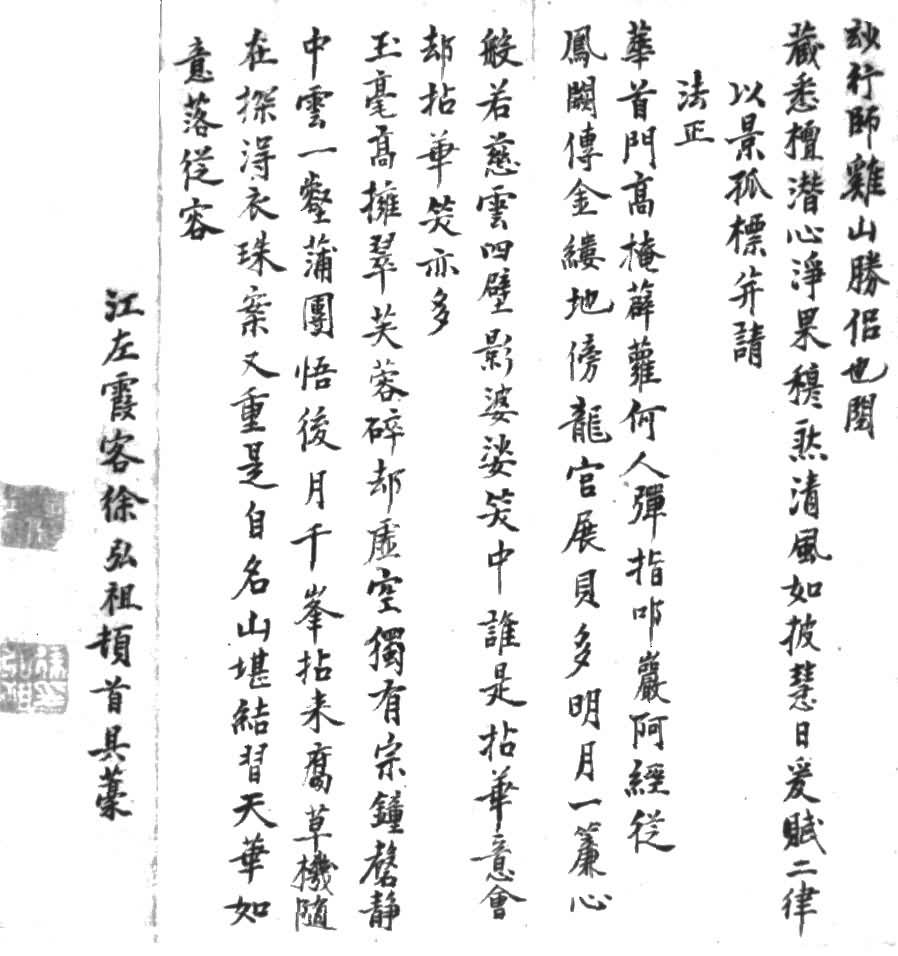 玅行師雞山勝侣也閱
藏悉檀潛心淨果穆然清風如披慧日爰賦二律
以景孤標并請
法正
華首門高掩薜蘿何人彈指叩巖阿經從
鳳闕傳金縷地傍龍宫展貝多明月一簾心
般若慈雲四壁影婆娑笑中誰是拈華意會
却拈華笑亦多
玉毫高擁翠芙蓉碎却虛空獨有宗鐘磬静
中雲一壑蒲團悟後月千峯拈来腐草機隨
在探淂衣珠案又重是自名山堪結習天華如
意落從容
江左霞客徐弘祖頓首具藳